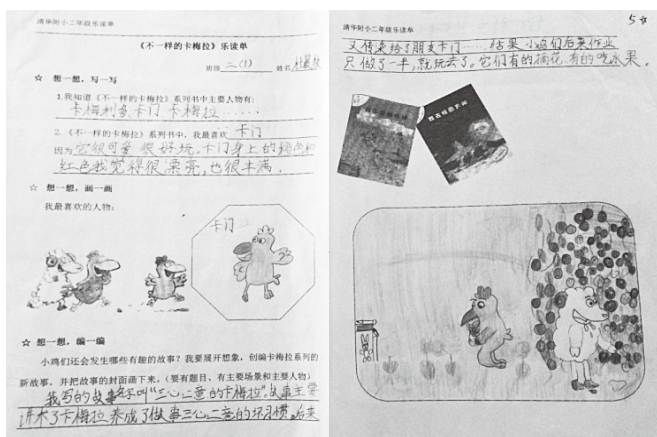 清华附小二年级乐读单
《不一样的卡梅拉》乐读单
班级 二(1) 姓名
☆ 想一想，写一写
1.我知道《不一样的卡梅拉》系列书中主要人物有：
卡梅利多 卡门 卡梅拉……
2.《不一样的卡梅拉》系列书中，我最喜欢 卡门
因为 它很可爱 很好玩。卡门身上的 和
红色我觉得很漂亮，也很丰满。
☆ 想一想，画一画
我最喜欢的人物：
卡门
☆ 想一想，编一编
小鸡们还会发生哪些有趣的故事？我要展开想象，创编卡梅拉系列的
新故事，并把故事的封面画下来。（要有题目、有主要场景和主要人物）
我写的故事名字叫“三心二意的卡梅拉”。故事主要
讲术了卡梅拉养成了做事三心二意的坏习惯。后来
清华附小二年级乐读单
5☆
又传染给了朋友卡门……结果小鸡们后来作业
只做了一半，就玩去了。它们有的摘花，有的吃水果。